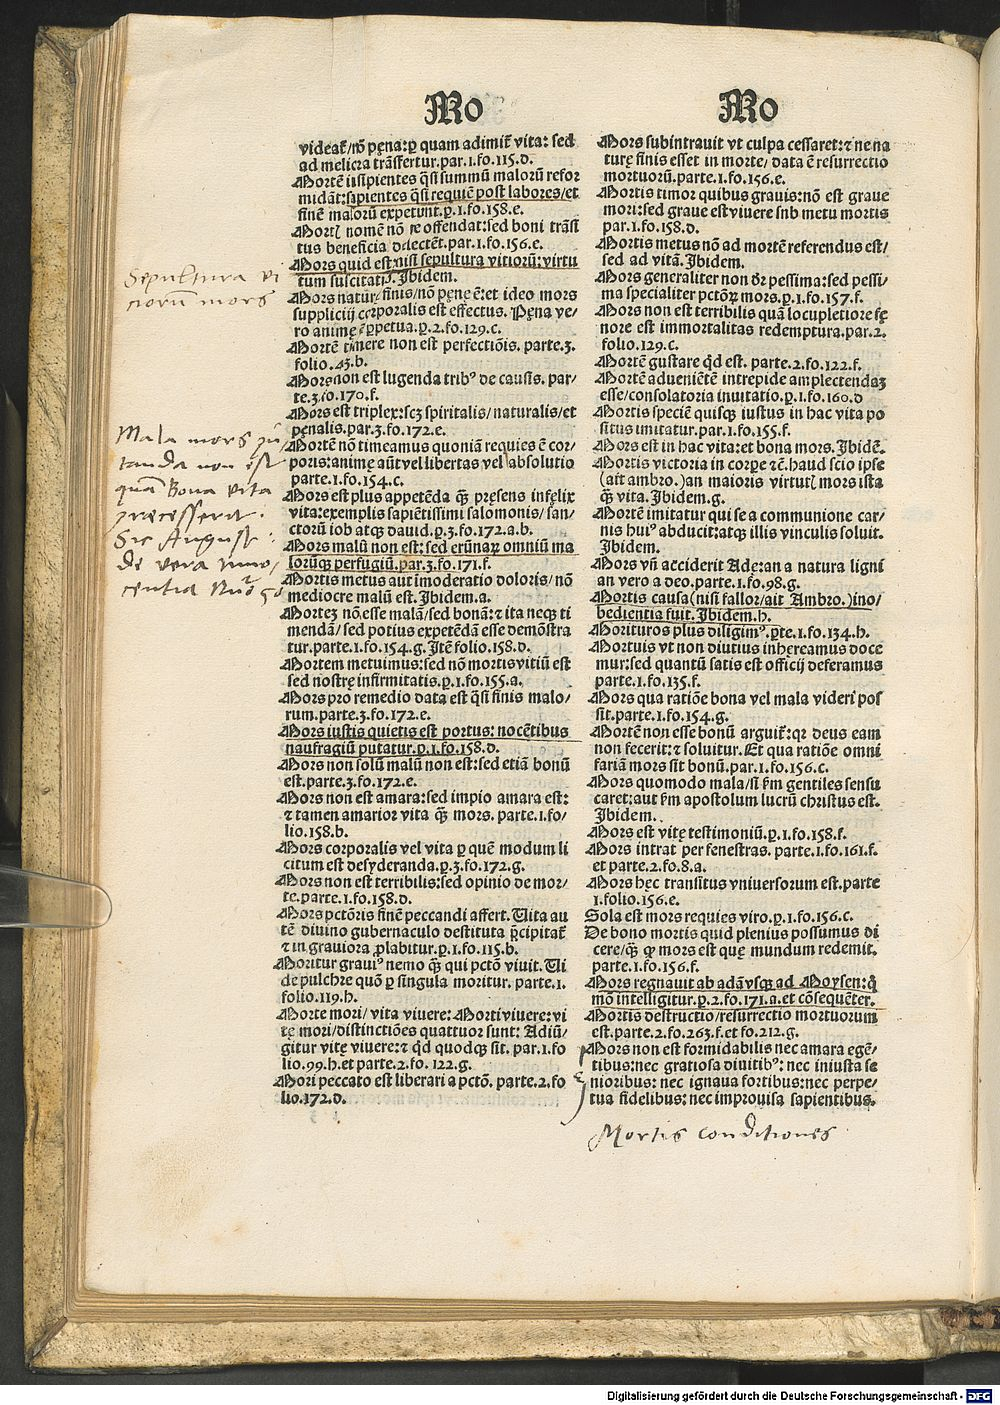 Mo
Mo
videat̄/nō pęna:ꝑ quam adimit̄ vita: sed
ad meliora trāsfertur.par.1.fo.115.d.
Mortē īsipientes q̄si summū malorū refor
midāt:sapientes q̄si requiē post labores/et
finē malorū expetunt.ꝑ.1.fo.158.e.
Mort nomē nō te offendat:sed boni trāsi
tus beneficia delectēt.par.1.fo.156.e.
Mors quid est:nisi sepultura vitiorū:virtu
tum suscitatiō.Ibidem.
Mors naturę finis/nō pęnę ē:et ideo mors
suppliciū corporalis est effectus. Pęna ve-
ro animę ē ꝑpetua.ꝑ.2.fo.129.c.
Mortē timere non est perfectiōis. parte.3.
folio.43.b.
Mors non est lugenda tribꝰ de causis. par-
te.3.fo.170.f.
Mors est triplex:scꝫ spiritalis/naturalis/et
pęnalis.par.3.fo.172.e.
Mortē nō timeamus quoniā requies ē cor-
poris:animę aūt vel libertas vel absolutio
parte.1.fo.154.c.
Mors est plus appetēda q̄ꝫ pręsens infęlix
vita:exemplis sapiētissimi salomonis/san/
ctorū iob atqꝫ dauid.ꝑ.3.fo.172.a.b.
Mors malū non est: sed erūnaꝝ omniū ma
lorūqꝫ perfugiū.par.3.fo.171.f.
Mortis metus aut imoderatio doloris/ nō
mediocre malū est. Ibidem.a.
Morteꝫ nō esse malā/sed bonā:⁊ ita neqꝫ ti
mendā/ sed potius expetēdā esse demōstra
tur.parte.1.fo.154.g.Itē folio.158.d.
Mortem metuimus:sed nō mortis vitiū est
sed nostrę infirmitatis.ꝑ.1.fo.155.a.
Mors pro remedio data est q̄si finis malo/
rum.parte.3.fo.172.e.
Mors iustis quietis est portus: nocētibus
naufragiū putatur.ꝑ.1.fo.158.d.
Mors non solū malū non est:sed etiā bonū
est.parte.3.fo.172.e.
Mors non est amara:sed impio amara est:
⁊ tamen amarior vita q̄ꝫ mors. parte.1.fo/
lio.158.b.
Mors corporalis vel vita ꝑ quē modum li
citum est desyderanda.ꝑ.3.fo.172.g.
Mors non est terribilis:sed opinio de mor/
te.parte.1.fo.158.d.
Mors pctōris finē peccandi affert.Vita au
tē diuino gubernaculo destituta p̄cipitat̄
⁊ in grauiora ꝓlabitur.ꝑ.1.fo.115.b.
Moritur grauiꝰ nemo q̄ꝫ qui pctō viuit. Vi
de pulchre quō ꝑ singula moritur. parte.1.
folio.119.h.
Morte mori/ vita viuere: Morti viuere:vi
tę mori/distinctiōes quattuor sunt: Adiū/
gitur vitę viuere:⁊ qd̄ quodqꝫ sit. par.1.fo
lio.99.h.et parte.2.fo.122.g.
Mori peccato est liberari a pctō. parte.2.fo
lio.172.d.
Mors subintrauit vt culpa cessaret:⁊ ne na
turę finis esset in morte/ data ē resurrectio
mortuorū.parte.1.fo.156.e.
Mortis timor quibus grauis:nō est graue
mori:sed graue est viuere sub metu mortis
par.1.fo.158.d.
Mortis metus nō ad mortē referendus est/
sed ad vitā. Ibidem.
Mors generaliter non dr̄ pessima:sed pessi/
ma specialiter pctōꝝ mors.ꝑ.1.fo.157.f.
Mors non est terribilis quā locupletiore fę
nore est immortalitas redemptura.par.2.
folio.129.c.
Mortē gustare qd̄ est. parte.2.fo.122.f.
Mortē aduenietē intrepide amplectendaꝫ
esse/consolatoria inuitatio.ꝑ.1.fo.160.d
Mortis speciē quisqꝫ iustus in hac vita po
situs imitatur.par.1.fo.155.f.
Mors est in hac vita:et bona mors.Ibidē.
Mortis victoria in corpe ⁊ē.haud scio ipse
(ait ambro.)an maioris virtut mors ista
q̄ꝫ vita.Ibidem.g.
Mortē imitatur qui se a communione car/
nis huiꝰ abducit:atqꝫ illis vinculis soluit.
Ibidem.
Mors vn̄ acciderit Adę:an a natura ligni
an vero a deo.parte.1.fo.98.g.
Mortis causa(nisi fallor/ait Ambro.)ino/
bedientia fuit.Ibidem.h.
Morituros plus diligimꝰ.ꝑte.1.fo.134.h.
Mortuis vt non diutius inhęreamus doce
mur:sed quantū satis est officij deferamus
parte.1.fo.135.f.
Mors qua ratiōe bona vel mala videri pos
sit.parte.1.fo.154.g.
Mortē non esse bonū arguit̄:qꝛ deus eam
non fecerit:⁊ soluitur. Et qua ratiōe omni
fariā mors sit bonū.par.1.fo.156.c.
Mors quomodo mala/si ẜm gentiles sensu
caret:aut ẜm apostolum lucrū christus est.
Ibidem.
Mors est vitę testimoniū.ꝑ.1.fo.158.f.
Mors intrat per fenestras. parte.1.fo.161.f.
et parte.2.fo.8.a.
Mors hęc transitus vniuersorum est.parte
1.folio.156.e.
Sola est mors requies viro.ꝑ.1.fo.156.c.
De bono mortis quid plenius possumus di
cere/q̄ꝫ ꝙ mors est quę mundum redemit.
parte.1.fo.156.f.
Mors regnauit ab adā vsqꝫ ad Moysen:q̊
mō intelligitur.ꝑ.2.fo.171.a.et cōsequēter.
Mortis destructio/resurrectio mortuorum
est.parte.2.fo.263.f.et fo.212.g.
Mors non est formidabilis nec amara egē-
tibus:nec gratiosa diuitibꝰ: nec iniusta se
nioribus: nec ignaua fortibus:nec perpe/
tua fidelibus: nec improuisa sapientibus.
Sepultura vi
ciorum mors
Mala mors pu
tanda non est
quam Bona vita
præcesserit.
Sic August:
de vera inno-
centia
Mortis conditiones
Digitalisierung gefördert durch die Deutsche Forschungsgemeinschaft - DFG